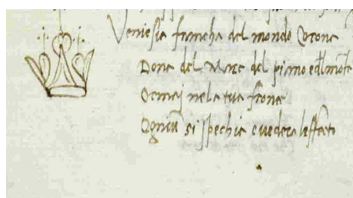 Venesia francha del mondo Corona
Dona del Mare del piano e del monte
Ormaj nela tua fronte
Ogniu si spechia e vedera leffecto